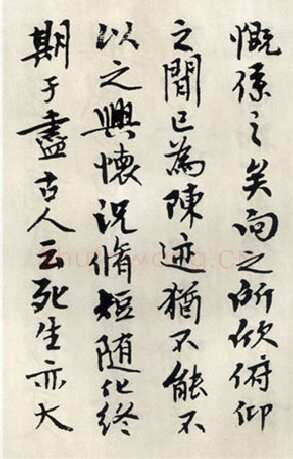 慨係之矣向之所欣俯仰
之間已為陳迹猶不能不
以之興懷況脩短随化終
期于盡古人云死生亦大